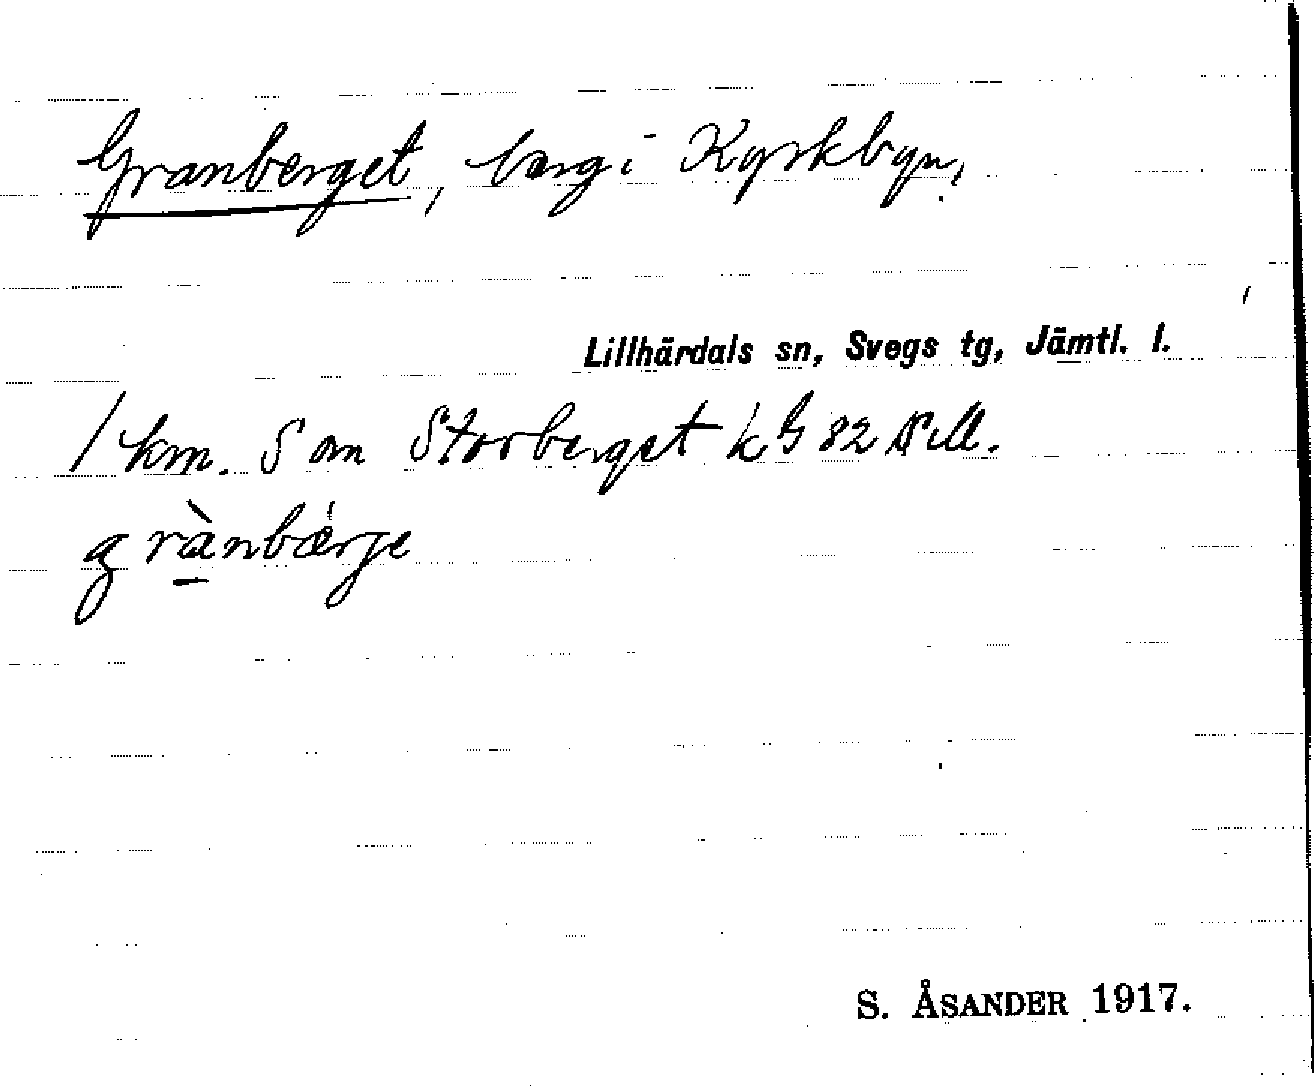 Granberget, berg i Kyrkbyn,
Lillhärdals sn, Svegs tg, Jämtl. l.
1 km. S om Storberget k G 82
grànbǽrje
S. ÅSANDER 1917.